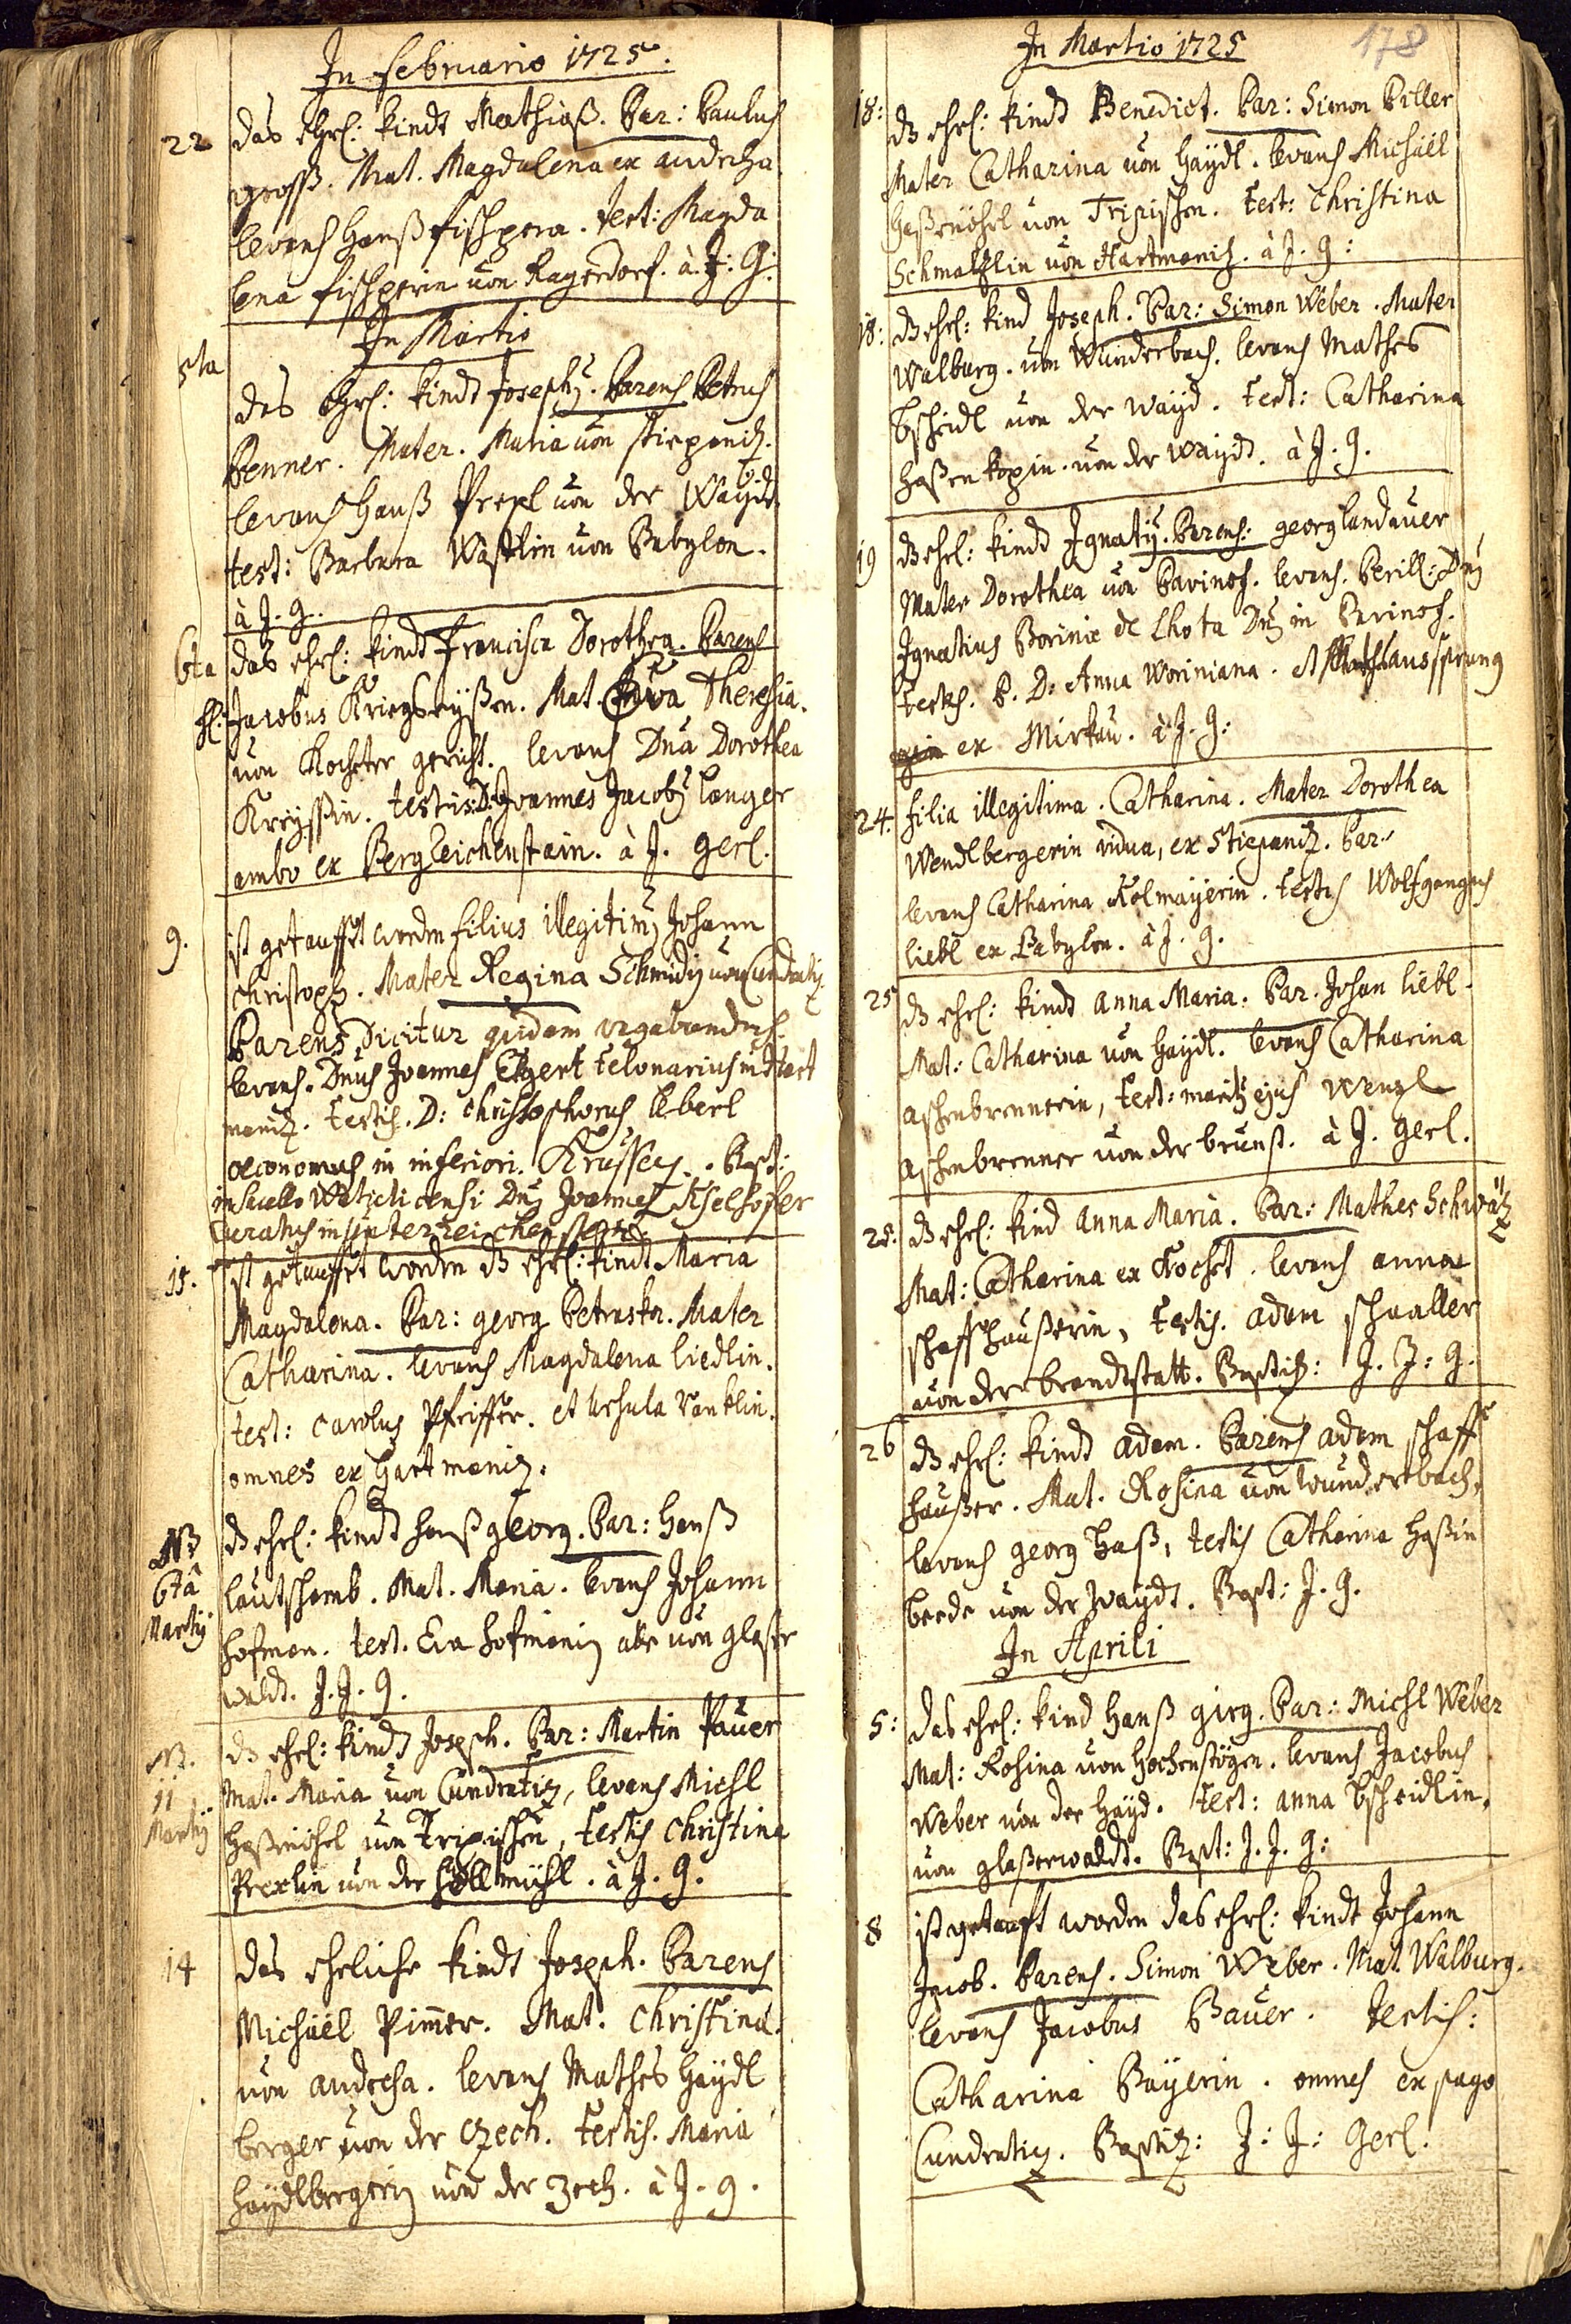 In Februario 1725.
22 das ehrl: kindt Mathiaß. Par: Paulus
groß. Mat. Magdalena ex andecha
levans Hanß fischpera. test: Magda
lena fischperin von Kagerdorf. à. J: G:
In Martio
5ta
das ehrl: kindt Joseph9. Parens Petrus
Penner. Mater. Maria von Stiepaniz.
levans Hanß Prexl von der Waydt.
test: Barbara Wastlin von Babylon.
à J. G.
6ta das ehrl: kindt Francisca Dorothea. Parens
H: Jacobus Kriegseyßen. Mat. Eva Theresia.
von Kocheter gericht. levans Dna Dorothea
Kreyssin. testis: D: Joannes Jacob9 langer
ambo ex Bergreichenstain. à J. Gerl.
9. ist getaufft worden filius illegitim9 Johann
Christoph. Mater Regina Schmidin von Cundratiz
Parens dicitur quidam vagabundus.
levans. Dnus Joannes Eggert telonarius in Hart
maniz. testis. D: Christophorus Eberl
oeconomus in inferiori. Krussez. Bapt:
in sacello Watieticensi Dn9 Joannes Eselhofer
Curatus in Unterreichenstein
15. ist getaufft worden dß ehrl: kindt Maria
Magdalena. Par: georg Petraskr. Mater
Catharina. levans Magdalena liedlin.
test: Carolus Pfeiffer. et Ursula Vanklin.
omnes ex Hartmaniz.
NB
6ta
Martij
dß ehrl: kindt Hanß georg. Par: Hanß
lautschamb. Mat. Maria. levans Johann
Hofman. test. Eva Hofmanin alle von glaser
waldt. J. J. G.
NB.
11
Martij
dß ehrl: kindt Joseph. Par: Martin Pauer
Mat. Maria von Cundratiz, levans Michl
Haßenöhrl von Tripischen, testis Christina
Prexlin von der Höllmühl. à J. G.
14 das eheliche kindt Joseph. Parens
Michäel Pimer. Mat. Christina.
von andecha. levans Mathes Haydl
berger von der Czech. testis. Maria
Haydlbergerin von der Zech. à J. G.
In Martio 1725
178
18: dß ehrl: kindt Benedict. Par: Simon Piller
Mater Catharina von Haydl. levans Michäel
Haßenöhrl von Tripischen. test: Christina
Schmalzlin von Hartmaniz. à J. G:
18: dß ehrl: kind Joseph. Par: Simon Weber. Mater
Walburg. von Wunderbach. levans Mathes
bscheidl von der Wayd. test: Catharina
Haßenkopin. von der Waydt. à J. G.
19 dß ehrl: kindt Ignatij. Parens: georg landauer
Mater Dorothea von Pavinof. levans. Perill: Dn9
Ignatius Borinie de Lhota Dn9 in Pavinof.
testes. P. D: Anna Woriniana. et aussprung
ex Mirkau. à J. G:
24. filia illegitima. Catharina. Mater Dorothea
Wendlbergerin vidua, ex Stiepaniz. Par:
levans Catharina Kolmayerin. testis Wolfgangus
liebl ex Babylon. à J. G.
25 dß ehrl: kindt anna Maria. Par. Johan liebl.
Mat: Catharina von Haydl. levans Catharina
aschenbrennerin, test: marit9 ejus Wenzl
aschenbrenner von der brunst. à J. Gerl.
25. dß ehrl: kind anna Maria. Par: Mathes Schwätz
Mat: Catharina ex Kochet. levans anna
schaffhaußerin, testis. adam schaaller
von der brandtstatt. Baptiz: J. J: G.
26 dß ehrl: kindt adam. Parens adam schaff
haußer. Mat. Rosina von Wunderbach,
levans georg Haß, testis Catharina Haßin
beede von der Waydt. Bapt: J. G.
In Aprili
5: das ehrl: kind Hanß girg. Par: Michl Weber
Mat: Rosina von Hochenstögen. levans Jacobus
Weber von der Hayd. test: anna bscheidlin,
von glaßerwaldt. Bapt: J. J. G:
8 ist getauft worden das ehrl: kindt Johann
Jacob. Parens. Simon Weber. Mat. Walburg.
levans Jacobus Bauer. testis:
Catharina Bayerin. omnes ex pago
Cundratiz. Baptiz: J: J: Gerl.